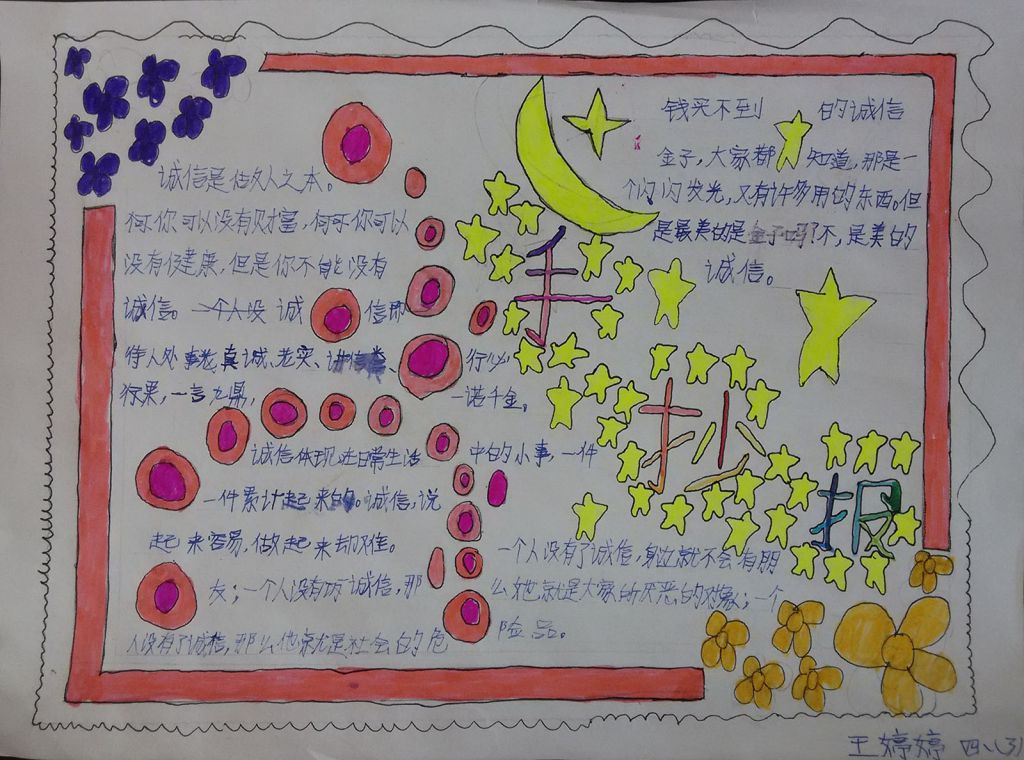 诚信是做人之本。
何你可以没有财富,何尔你可以
没有健康,但是你不能没有
诚信。一个人没 诚 信即
待人处事 真诚、老实、讲信 行必
行果,一言九鼎, 一诺千金。
诚信体现进日常生活 中的小事,一件
一件累计起来的。诚信,说
起来容易,做起来却难。
一个人没有了诚信,身边就不会有朋
友;一个人没有 诚信,那 么他就是大家所厌恶的对象;一个
人没有了诚信,那么他就是社会的危 险品。
钱买不到 的诚信
金子,大家都 知道,那是一
个闪闪发光,又有许多用的东西。但
是最美的是金子吗?不,是美的
诚信。
手
抄
报
王婷婷 四、(3)